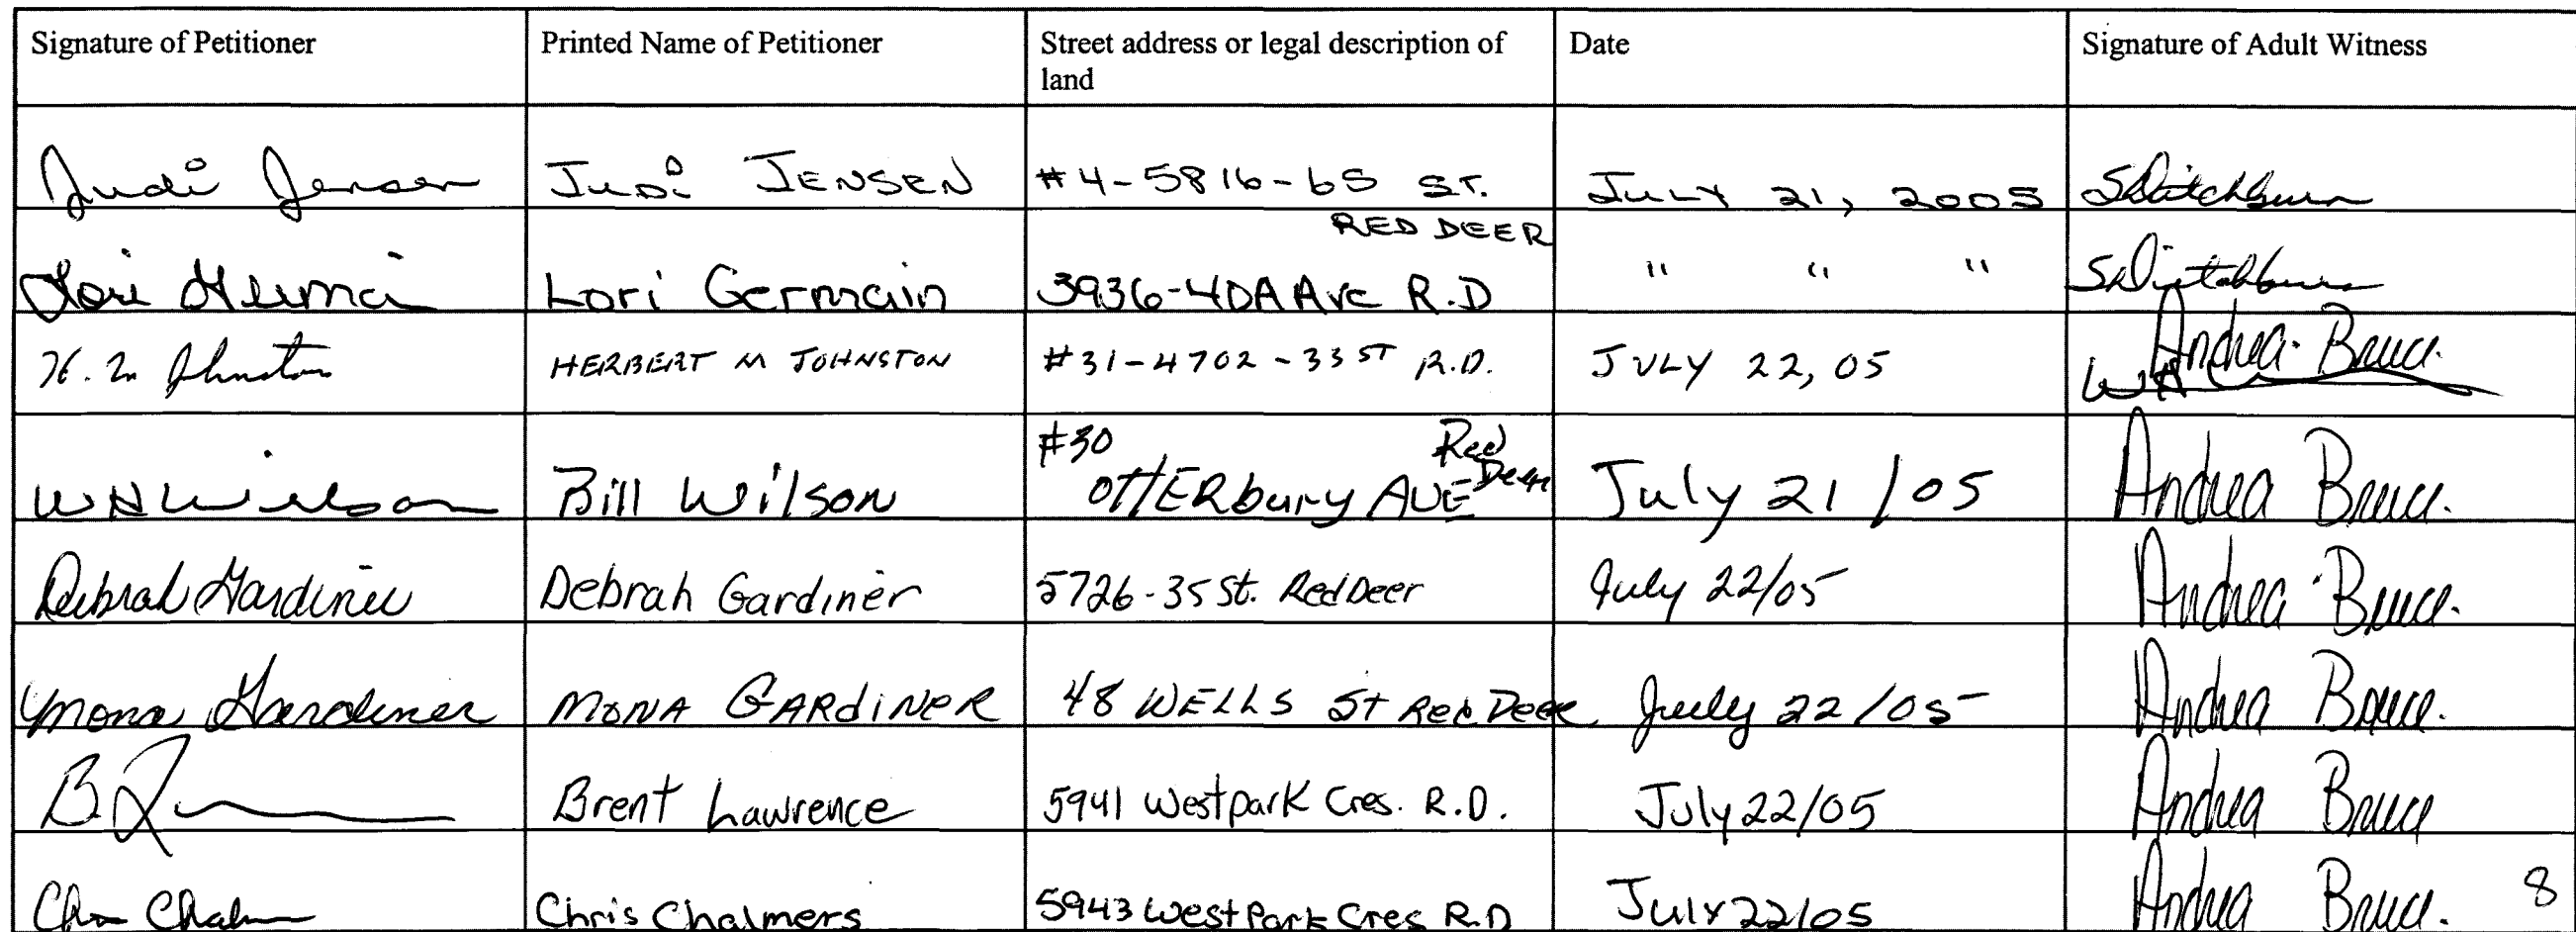 Signature of Petitioner Printed Name of Petitioner Street address or legal description of land Date Signature of Adult Witness
Judi Jensen Judi JENSEN #4-5816-65 ST. RED DEER JULY 21, 2005 SDitchburn
Lori Germai Lori Germain 3936-40A Ave R.D " " " SDitchburn
H. M Johnston HERBERT M JOHNSTON #31-4702-33 ST R.D. JULY 22, 05 Andrea Bruce.
W H Wilson Bill Wilson #30 OttERbury AVE Red Deer July 21/05 Andrea Bruce.
Debrah Gardiner Debrah Gardiner 5726-35 St. Red Deer July 22/05 Andrea Bruce.
Mona Gardiner MONA GARDiNER 48 WELLS St Red Deer July 22/05 Andrea Bruce.
Brent Lawrence 5941 Westpark Cres. R.D. July 22/05 Andrea Bruce
Chris Chalmers 5943 West Park Cres R.D July 22/05 Andrea Bruce. 8